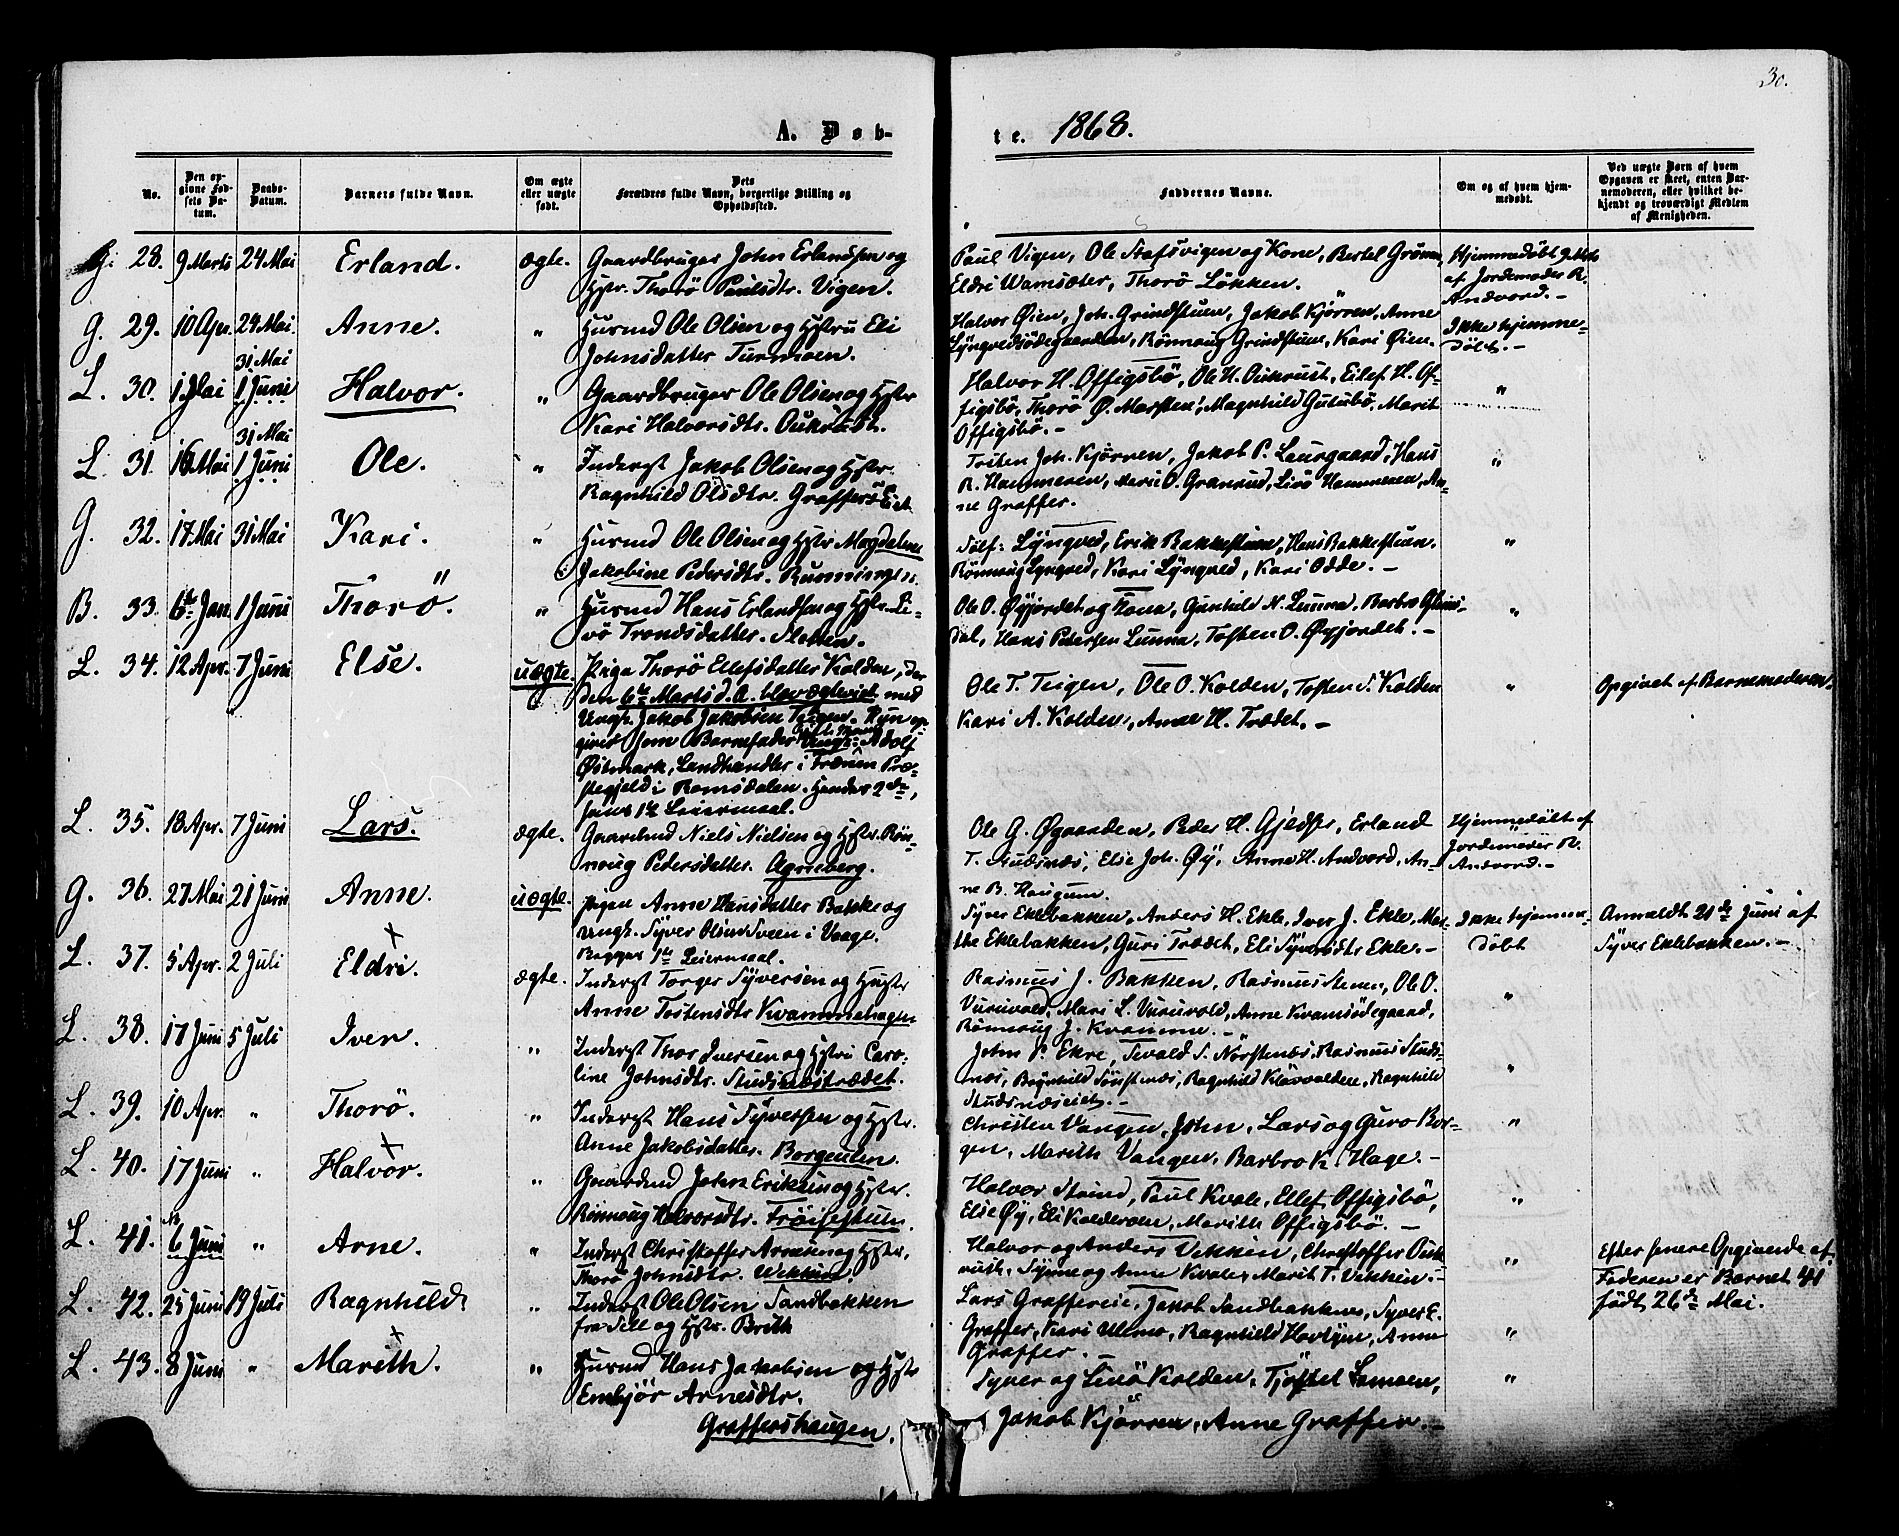 30.
A. Døb-
te. 1868.
No.
Den op-
givne Fød-
sels Da-
tum.
Daabs-
Datum.
Barnets fulde Navn.
Om ægte
eller uægte
født.
Dets
Forældres fulde Navn, borgerlige Stilling og
Opholdssted.
Faddernes Navne.
Om og af hvem hjem-
medøbt.
Ved uægte Børn af hvem
Opgaven er skeet, enten Bar-
nemoderen, eller hvilket be-
kjendt og troværdigt Medlem
af Menigheden.
G. 28. 9 Marts 24 Mai Erland. ægte. Gaardbruger John Erlandsen og
Hstr. Thorö Paulsdtr. Vigen.
Paul Vigen, Ole Stafsvigen og Kone, Bertel Grönen,
Eldri Wamsæter, Thorö Lökken.
Hjemmedöbt
af Jordemoder R.
Andvord. -
G. 29. 10 Apr. 24 Mai. Anne. " Husmd Ole Olsen og Hstru Eli
Johnsdatter Turmoen.
Halvor Øien, Joh. Grindstuen, Jakob Kjörren, Anne
Lyngvedsödegaarden, Rönnaug Grindstuen, Kari Øien.
Ikke hjemme-
döbt. -
L. 30. 1 Mai 31 Mai
1 Juni Halvor. " Gaardbruger Ole Olsen og Hstr
Kari Halvorsdtr. Oukrust.
Halvor H. Offigsbö, Ole H. Oukrust, Eilef H. Of-
figsbö, Thorö Ø. Marsten, Magnhild Gutubö, Marit
Offigsbö. - "
L. 31. 16 Mai 31 Mai
1 Juni Ole. " Inderst Jakob Olsen og Hstr.
Ragnhild Olsdtr. Graffers Eie.
Tosten Joh. Kjörren, Jakob P. Laurgaard, Hans
R. Hammeren, Mari O. Granrud, Livö Hammeren, An-
ne Graffer. "
G. 32. 17 Mai 31 Mai Kari. " Husmd Ole Olsen og Hstr Magdalene
Jakobine Pedersdtr. Rusningen.
Sölf. Lyngved, Erik Bakkestuen, Hans Bakkestuen.
Rönnaug Lyngved, Kari Lyngved, Kari Odde. - "
B. 33. 6te Jan. 1 Juni Thorö. " Husmd Hans Erlandsen og Hstr. Li-
vö Trondsdatter. Sletten.
Ole O. Øyjordet og Kona, Gunhild N. Lunna, Barbro Glims-
dal, Hans Pedersen Lunna, Tosten O. Øyjordet. - "
L. 34. 12 Apr. 7 Juni Else. uægte. Pige Thorö Ellefsdatter Kolden, der
den 6te Marts d. A. blev ægteviet med
Ungk. Jakob Jakobsen Teigen. Hun op-
giver som Barnefader Ungk. Adolf
Østmark, Landhandler i Fræum Præ-
stegjeld i Romsdalen. Hendes 2det,
hans 1te Leiermaal.
Ole T. Teigen, Ole O. Kolden, Tosten S. Kolden
Kari A. Kolden, Anne H. Trædet. - " Opgivet af Barnemoderen.
L. 35. 18 Apr. 7 Juni Lars. ægte. Gaardmd Niels Nielsen og Hstr. Rön-
naug Pedersdatter. Agneberg.
Ole G. Øgaarden, Peder H. Gjeldser, Erland
T. Stuesnæs, Else Joh. Øy, Anne H. Andvord, An-
ne B. Haugum.
Hjemmedöbt af
Jordemoder R.
Andvord. -
G. 36. 27 Mai 21 Juni Anne. uægte. Pigen Anne Hansdatter Bakke og
Ungk. Syver Olsen Sveen i Vaage.
Begges 1te Leiermaal.
Syver Eklebakken, Anders H. Ekle, Iver J. Ekle, Mar-
the Eklebakken, Guri Trædet, Eli Syversdtr Ekle. -
Ikke hjemme-
döbt
Anmeldt 21de Juni af
Syver Eklebakken. -
L. 37. 5 Apr. 2 Juli Eldri. ægte. Inderst Torger Syversen og Hustr
Anne Tostensdtr Kvammehagen
Rasmus J. Bakken, Rasmus Stenen, Ole O.
Vurvold, Mari L. Vurvold, Anne Kvamsödegaard,
Rönnaug J. Kvamme. - "
L. 38. 17 Juni 5 Juli Iver. " Inderst Thor Iversen og Hstru Caro-
line Johnsdtr. Studsnæstrædet.
John P. Ekre, Sevald S. Nörstenæs, Rasmus Studs-
næs, Ragnhild Klövvolden, Ragnhild
Studsnæseiet. - "
L. 39. 10 Apr. " Thorö. " Inderst Hans Syversen og Hstr.
Anne Jakobsdatter. Borgeulen.
Christen Vangen, John, Lars og Guro Bor-
gen, Marith Vangen, Barbro K. Hage. - "
L. 40. 17 Juni " Halvor. " Gaardmd John Eriksen og Hstr.
Rönnoug Halvorsdtr. Fröisestuen.
Halvor Strind, Paul Kvale, Ellef Offigsbö,
Else Øy, Eli Kolderoen, Marith Offigsbö. - "
L. 41. NB
6 Juni " Arne. " Inderst Christoffer Arnesen og Hstr.
Thorö Johnsdtr. Wekkin.
Halvor og Anders Vekkin, Christoffer Ouk-
rust, Synne og Anne Kvale, Marit T. Vekkin. - "
Efter senere Opgivende af
Faderen er Barnet 41
födt 26de Mai.
L. 42. 25 Juni 19 Juli Ragnhild " Inderst Ole Olsen Sandbakken
fra Sell og Hstr. Brith
Lars Graffereie, Jakob Sandbakken, Syver E.
Graffer, Kari Ulmo, Ragnhild Hovtyn, Anne
Graffer. "
L. 43. 8 Juni " Marith. " Husmd Hans Jakobsen og Hstr
Embjör Arnesdtr.
Graffershaugen.
Syver og Livö Kolden, Tjöstel Lamoen,
Jakob Kjörren, Anne Graffer. - "